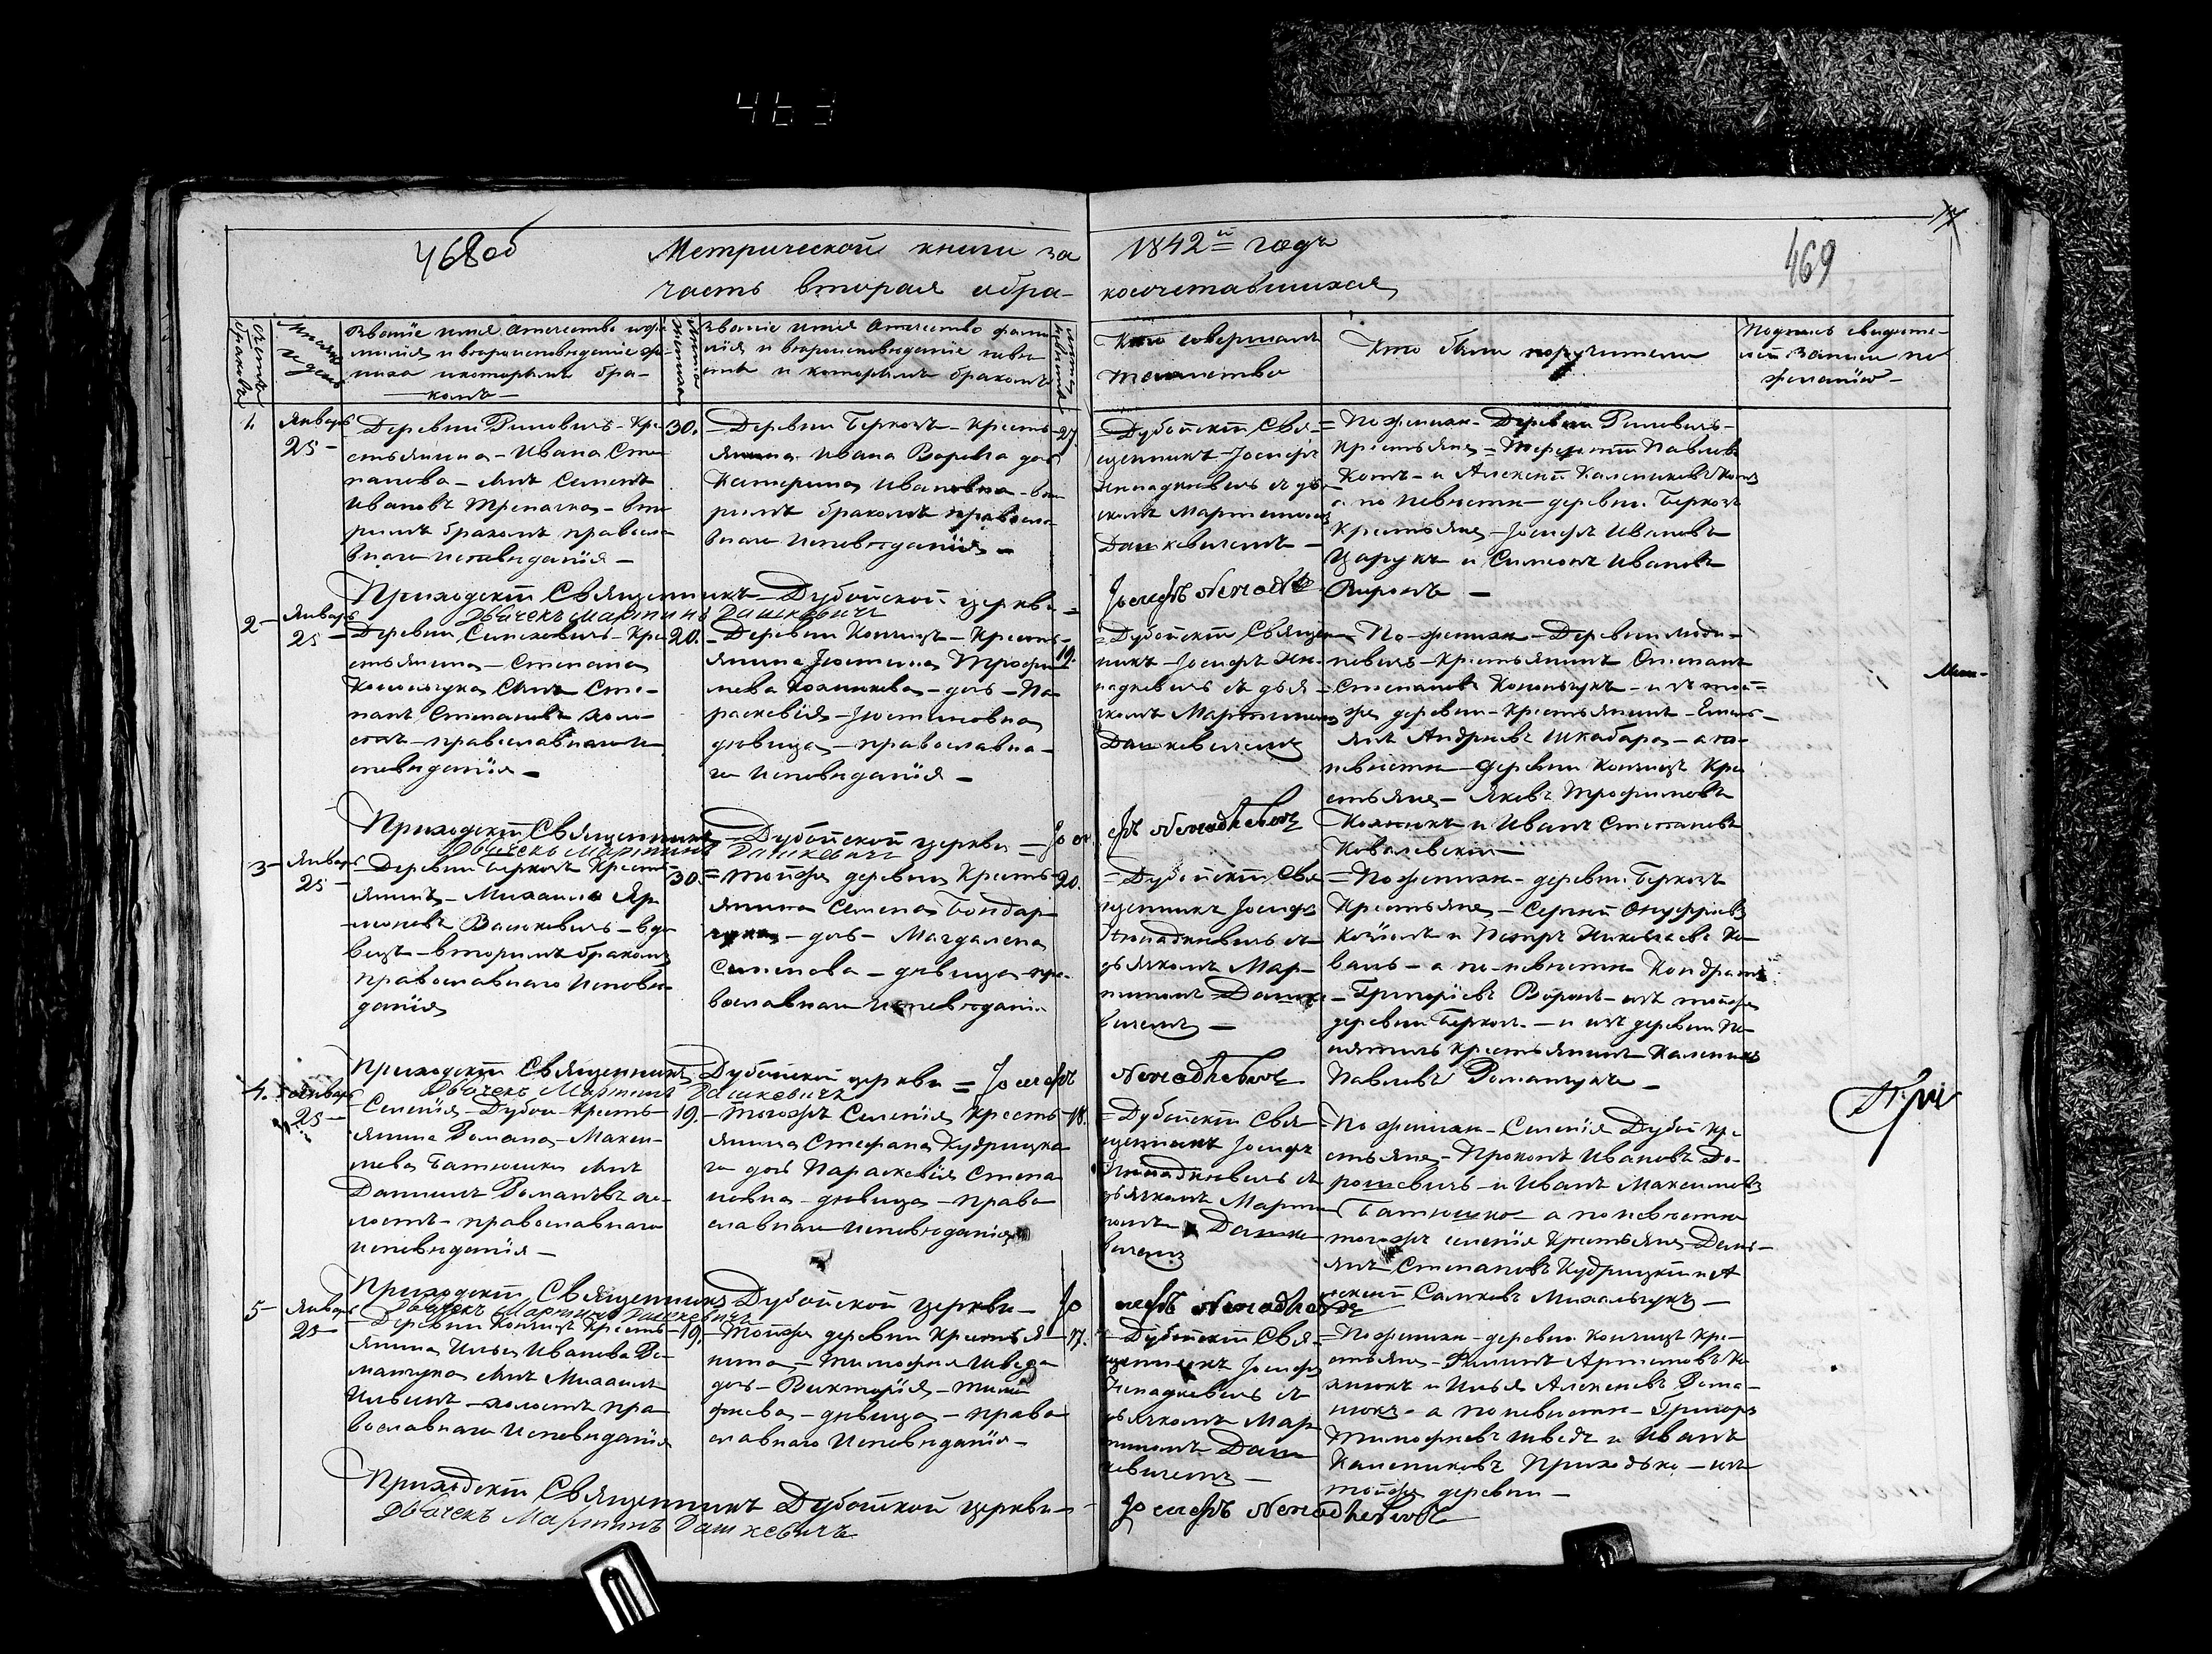 463
468об
Метрической книги за
1842й годъ
469
17
часть вторая о бра-
косочетавшихся
Счетъ браковъ
Мѣсяцъ и день
Званїе имя отечество и фа-
милїя и вѣроисповѣданїе же-
ниха и которымъ бра-
комъ
Лѣта жениха
Званїе имя отечество фами
лїя и вѣроисповѣданїе невѣ
сты и которымъ бракомъ
Лѣта невѣсты
Кто совершалъ
таинство
Кто были поручители
Подпись свидѣте-
лей записи по
желанїю
1.
Январь
25
Деревни
Кре-
стьянина - Ивана Сте
панова - сынъ Семенъ
Ивановъ Трепачка - вто
рымъ бракомъ правосла
внаго исповѣданїя
30.
Деревни Беркозъ - кресть
янина Ивана Ворона дочь
Катерина Ивановна - вто
рымъ бракомъ правосла
внаго исповѣданїя
27.
Дубойскїй Свя-
щенникъ Іосифъ
Ненадкевичь съ дья
комъ Мартиномъ
Дашкевичемъ
По женихѣ - Деревни
крестьяне - Терентїй Павловъ
Котъ - и Алексей Калениковъ Котъ
а по невѣсти - деревни Беркозъ
крестьяне - Іосифъ Ивановъ
Царукъ и Симеонъ Ивановъ
Воронъ
Приходскїй Священникъ Дубойской церкви
Іосифъ Ненадкевичъ
Дьячекъ Мартинъ Дашкевичъ
2
Январь
25
Деревни
Кре-
стьянина - Степана
Конончука сынъ Сте-
панъ Степановъ холо-
стъ - православнаго и-
споведанїя
20.
Деревни Кончицъ - Кресть-
янина Іюстина Трофи
мова Колоникова - дочь - Па-
раскевїя - Іюстиновна
дѣвица - православна-
го исповѣданїя
19.
Дубойскїй Священ
никъ - Іосифъ Не-
надкевичь съ дья
комъ Мартиномъ
Дашкевичемъ
По женихѣ - Деревни
крестьянинъ Степанъ
Степановъ Кононьчукъ - и съ той
же деревни - крестьянинъ - Емель-
янъ Андреевъ Шкабара - а по
невѣсти - деревни Кончицъ кре
стьяне - Яковъ Трофимовъ
и Иванъ Степановъ
Ковалевскїй
Приходскїй Священникъ Дубойской церкви - Іосифъ Ненадкевичъ
Дьячекъ Мартинъ Дашкевичъ
3
Январь
25
Деревни Беркозъ Кресть
янинъ - Михаилъ Яр
моновъ Васюкевичь - вдо
вецъ - вторымъ бракомъ
православнаго исповѣ
данїя
30.
Тойже деревни Кресть-
янина Семена Бондар
чука - дочь - Магдалена
Семенова - дѣвица - пра
вославнаго исповѣданїя
20.
Дубойскїй Свя
щенникъ Іосифъ
Ненадкевичь съ
дьячкомъ Мар-
тиномъ Дашке
вичемъ
По женихѣ - деревни Беркозъ
крестьяне - Сергей Онуфрїевъ
и Петръ Николаевъ Ко
валь - а по невѣсти Кондратъ
Григорїевъ Воронъ - изъ тойже
деревни Беркозъ - и изъ деревни По
крестьянинъ Каленикъ
Павловъ Романчукъ
Приходскїй Священникъ Дубойской церкви = Іосифъ Ненадкевичъ
Дьячекъ Мартинъ Дашкевичъ
4.
Январь
25
Селенїя - Дубои - кресть-
янина Романа - Макси-
мова Батюшки сынъ
Данїилъ Романовъ хо-
лостъ - православнаго
исповѣданїя
19.
Тогожъ Селенїя кресть
янина Стефана Кудрицка
го дочь Параскевїя Степа
новна - дѣвица - право
славнаго исповѣданїя
18.
Дубойскїй Свя
щенникъ Іосифъ
Ненадкевичь съ
дьячкомъ Марти
номъ Дашке
вичемъ
По женихѣ - Селенїя Дубои кре
стьяне - Прокопъ Ивановъ До-
рошевичь - и Иванъ Максимовъ
Батюшко - а по невѣсти
тогожъ селенїя крестьяне Демь-
янъ Степановъ Кудрицкїй и А
лексей Савковъ Михальчукъ
Приходскїй Священникъ Дубойской церкви - Іосифъ Ненадкевичъ
Дьячекъ Мартинъ Дашкевичъ
5
Январь
25
Деревни Кончицъ кресть
янина Ильи Иванова Ро-
манчука сынъ Михаилъ
Ильинъ - холостъ пра
вославнаго исповѣданїя
19.
Тойже деревни крестья
нина - Тимофея Шведа
дочь - Викторїя - Тимо
феева - дѣвица - право
славнаго исповѣданїя
17.
Дубойскїй Свя-
щенникъ Іосифъ
Ненадкевичь съ
дьячкомъ Мар
тиномъ Даш
кевичемъ
По женихѣ - деревни Кончицъ кре-
стьяне - Филипъ Артемовъ
и Илья Алексеевъ Рома-
нюкъ - а по невѣсти - Григорь
Тимофеевъ Шведъ и Иванъ
Калениковъ Приходько - изъ
тойже деревни
Приходскїй Священникъ Дубойской церкви
Іосифъ Ненадкевичъ
Дьячекъ Мартинъ Дашкевичъ